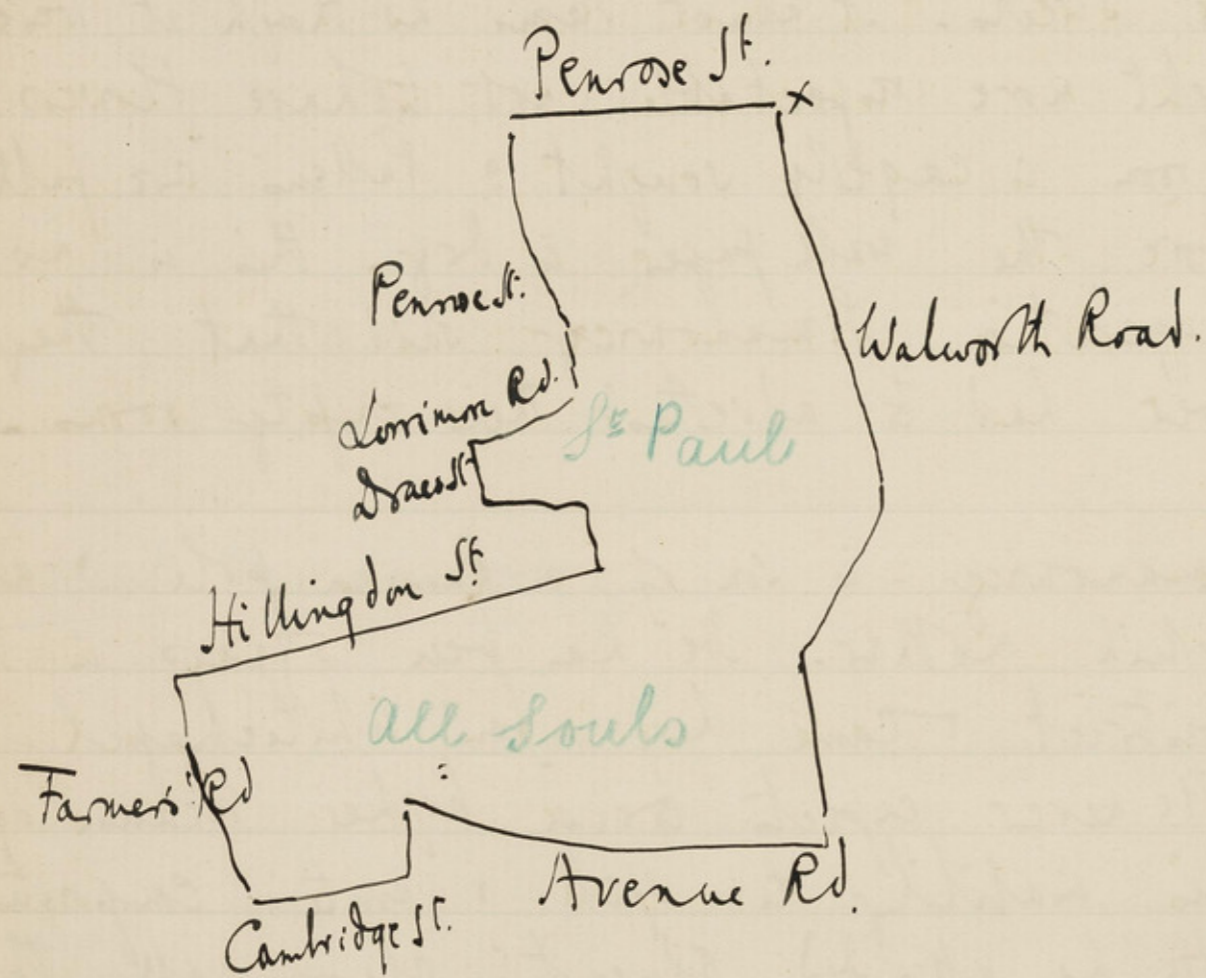 Penrose St.
x
Penrose St.
Walworth Road.
Lorrimore Rd.
St Paul
Draco St
Hillingdon St
All Souls
Farmers' Rd
Avenue Rd.
Cambridge St.